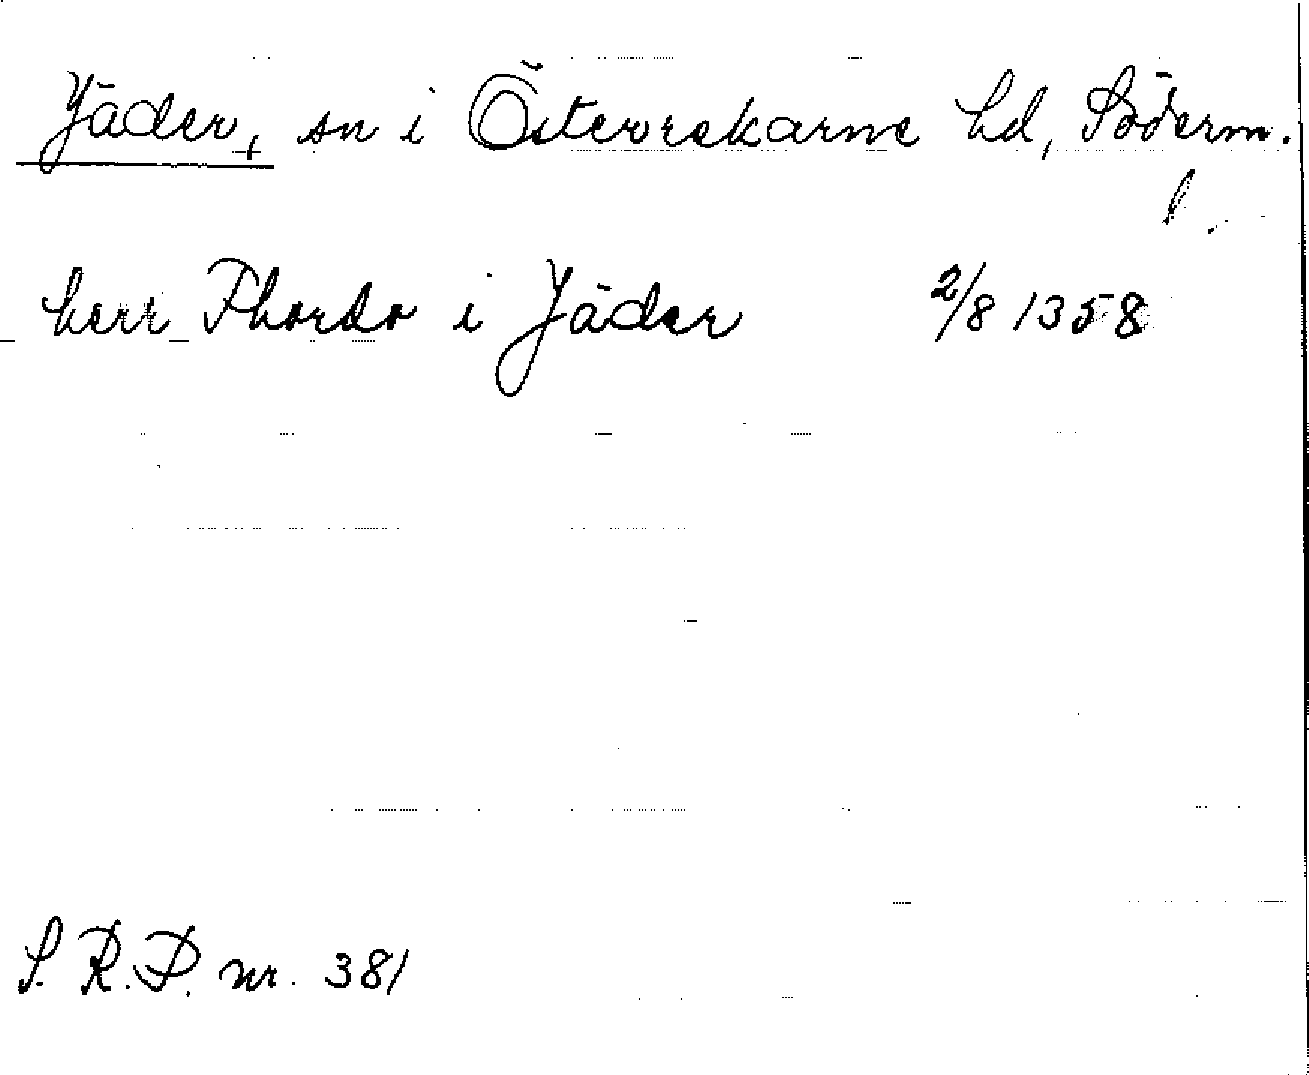 Jäder, sn i Österrekarne hd, Söderm.
l.
herr Thordo i Jäder 2/8 1358
S.R.P. nr. 381